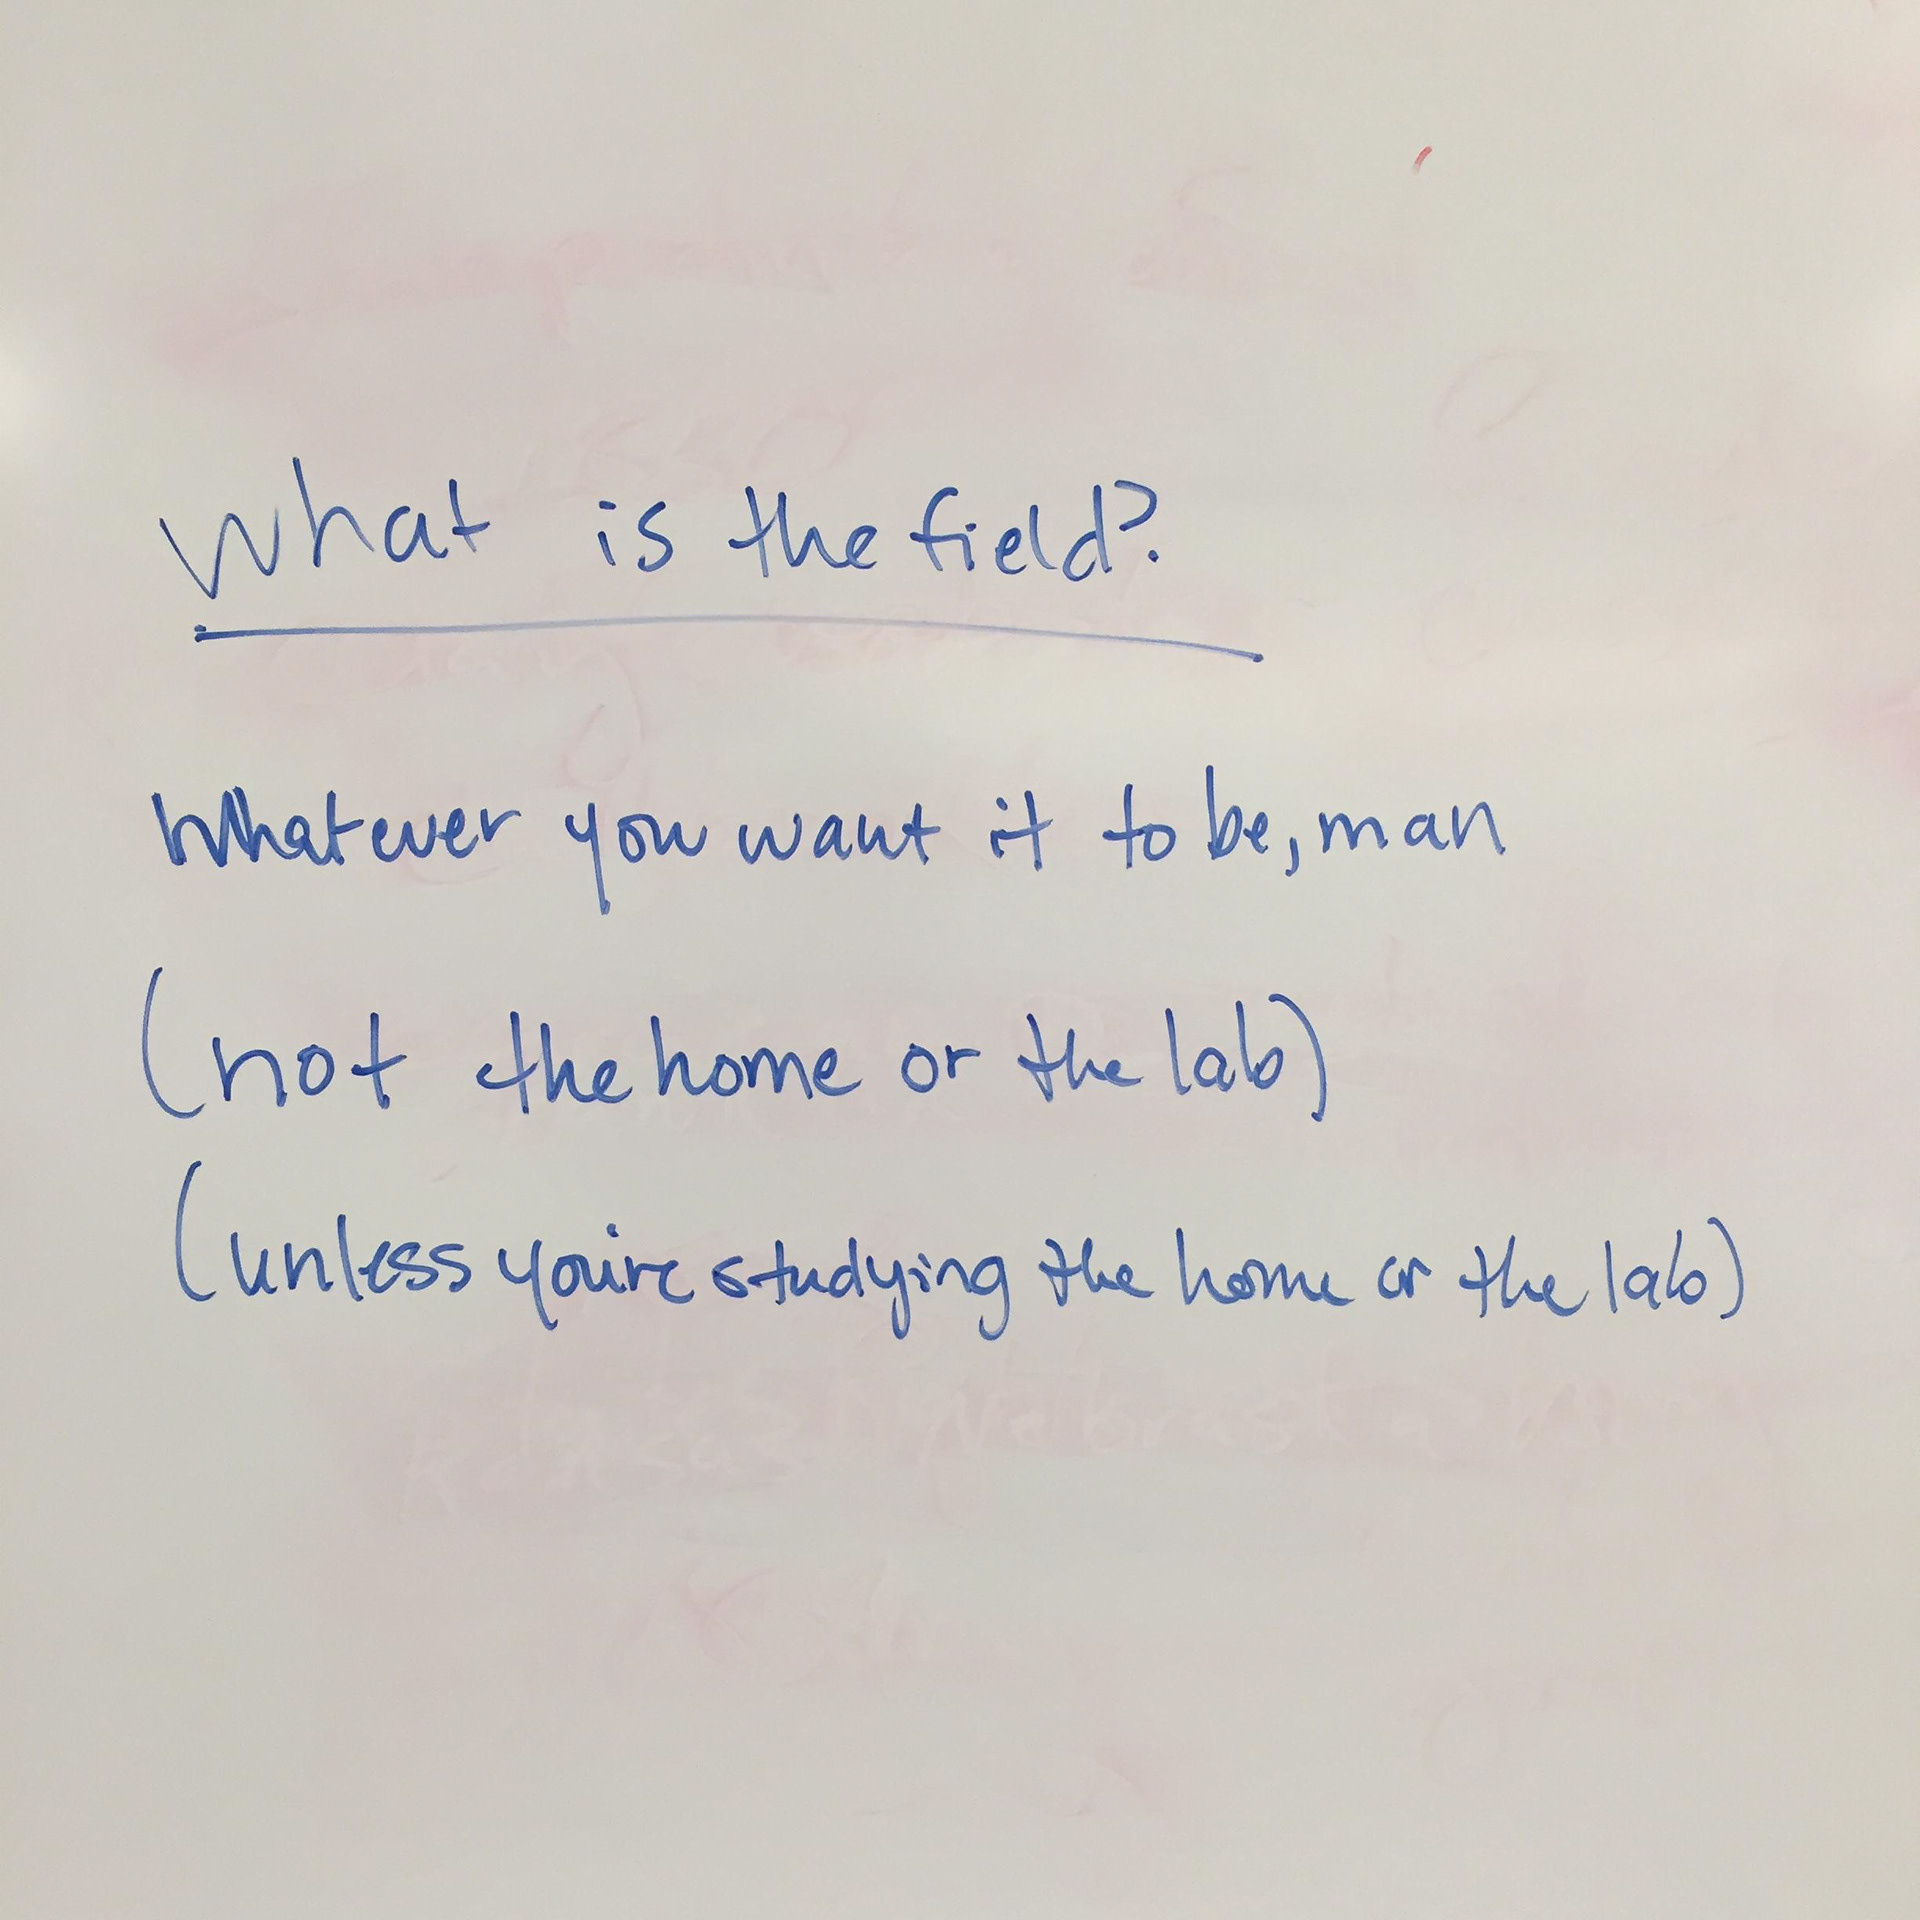 What is the field?
Whatever you want it to be, man
(not the home or the lab)
(unless you're studying the home or the lab)